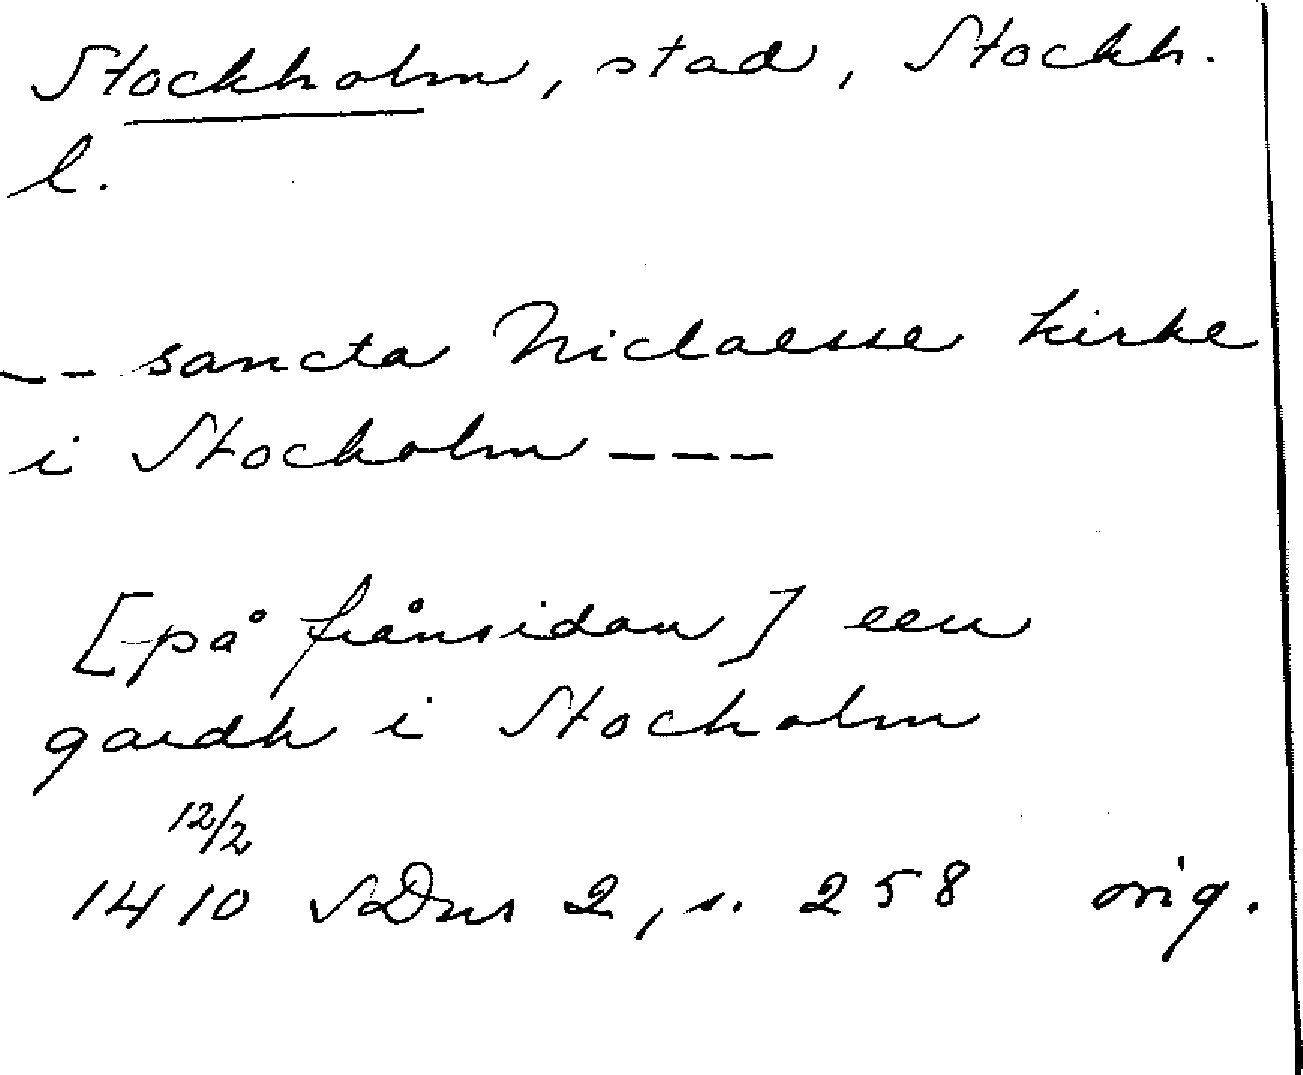 Stockholm, stad, Stockh.
l.
-- sancta Niclaesse kirke
i Stockholm ---
[på frånsidan] een
gardh i Stocholm
12/2
1410 SDns 2, s. 258 orig.